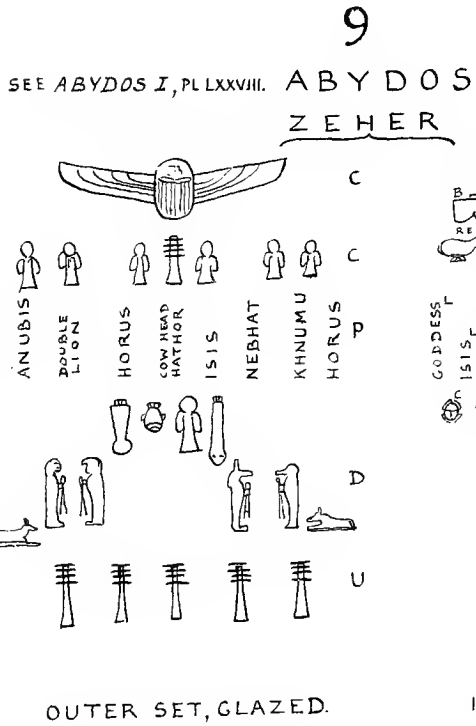 9
SEE ABYDOS I, PL LXXVIII. ABYDOS
ZEHER
C
B
RE
C
ANUBIS
DOUBLE
LION
HORUS
COW HEAD
HATHOR
ISIS
NEBHAT
KHNUMU
HORUS
P
GODDESS L
ISIS L
C
D
U
OUTER SET, GLAZED.